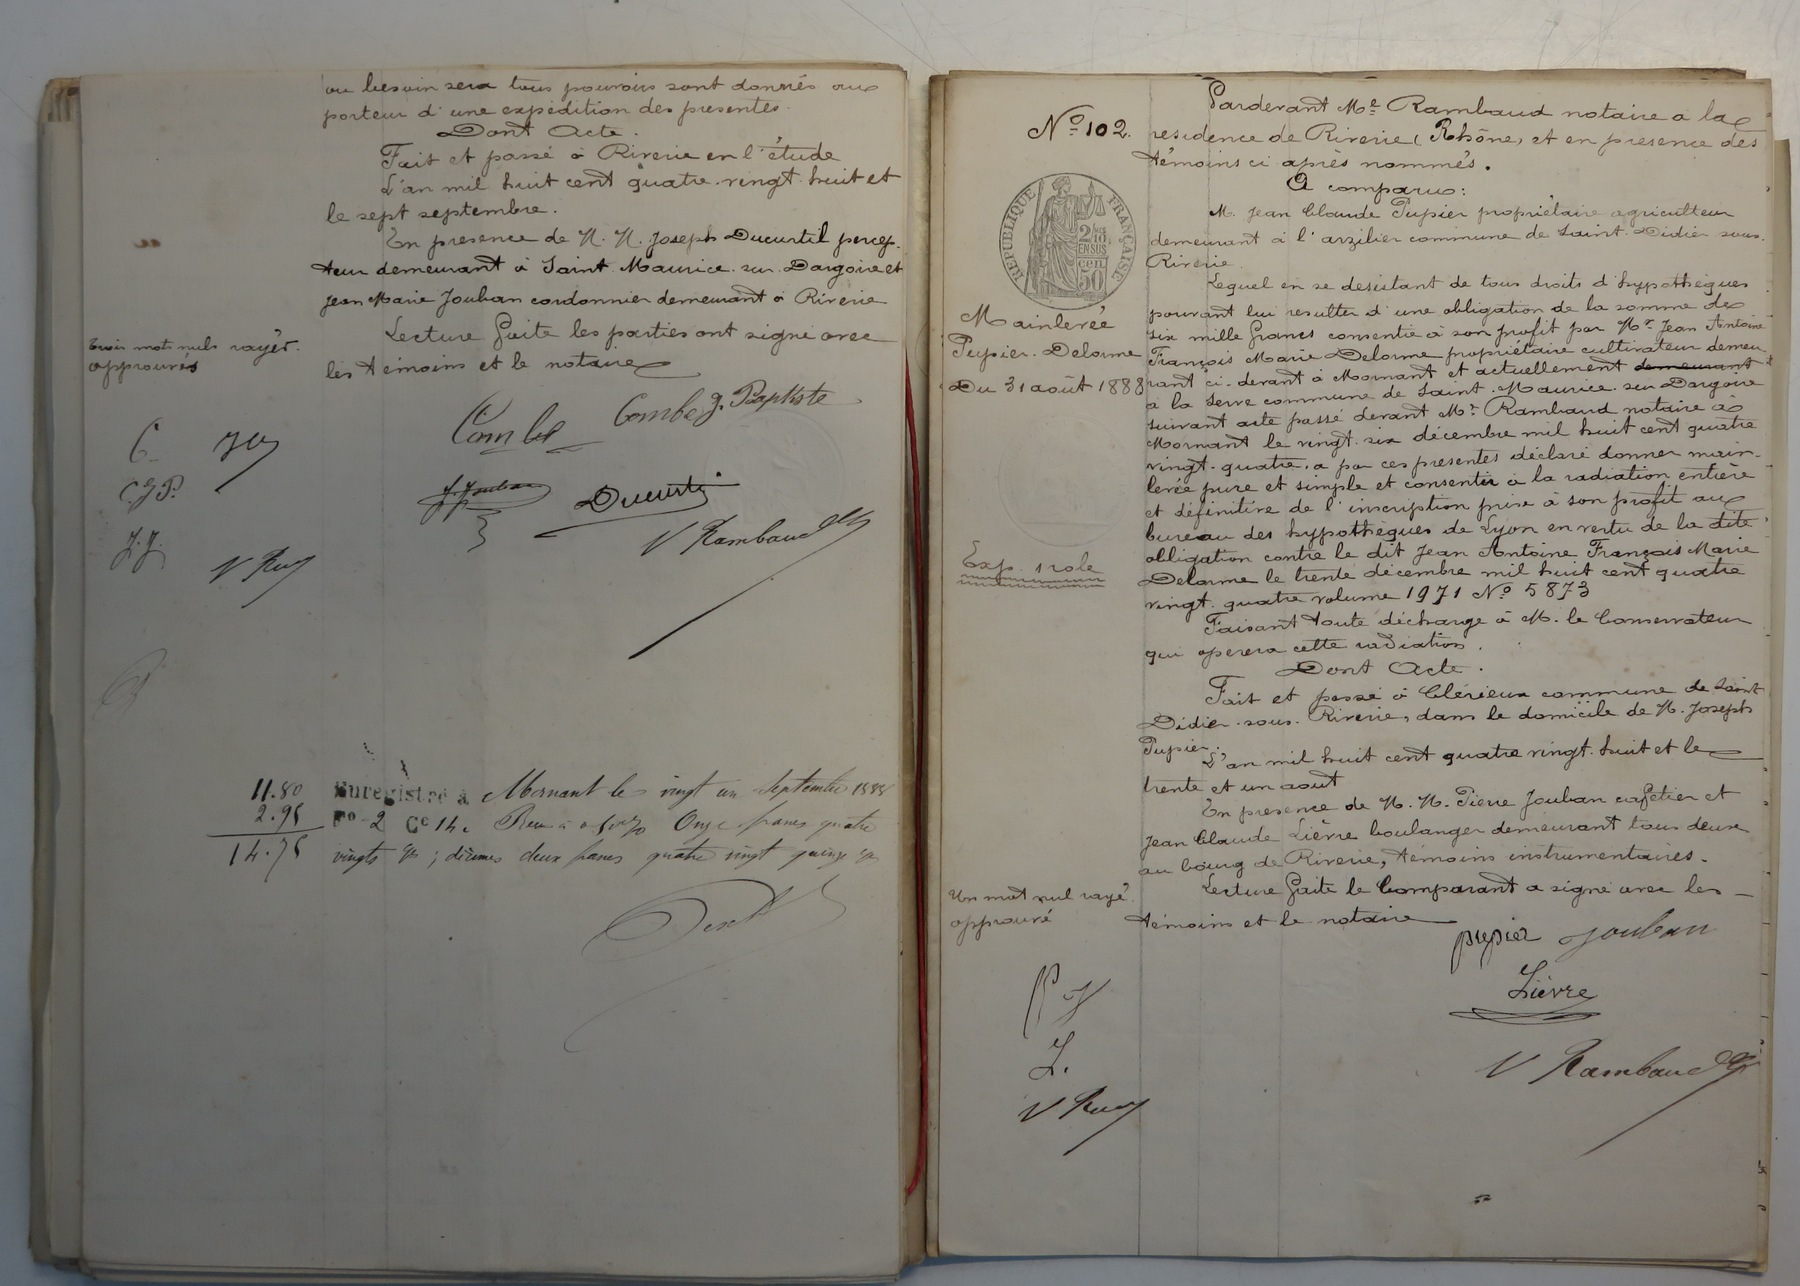 ou besoin sera tous pouvoirs sont donnés au
porteur d'une expédition des présentes.
Dont Acte.
Fait et passé à Riverie en l'étude
L'an mil huit cent quatre-vingt-huit et
le sept septembre.
En présence de M. M. Joseph Ducurtil percep-
teur demeurant à Saint-Maurice-sur-Dargoire et
Jean Marie Jouban cordonnier demeurant à Riverie
Lecture faite les parties ont signé avec
les témoins et le notaire
trois mots nuls rayés
approuvés
Combe Combe J. Baptiste
C. JM
C.J.B.
J. Jouban Ducurtil
J.J.
V Rambaud
V Ram
11.80
2.95
14.75
Enregistré à Mornant le vingt un septembre 1888
Fo 2 Ce 14. Reçu à Onze francs quatre
vingts ; décimes deux francs quatre vingt quinze
No 102.
Pardevant Me Rambaud notaire à la
résidence de Riverie (Rhône) et en présence des
témoins ci-après nommés.
A comparu:
M. Jean Claude Pupier propriétaire agriculteur
demeurant à l'arzilier commune de Saint-Didier-sous-
Riverie.
RÉPUBLIQUE FRANÇAISE
2/10
EN SUS
cen
50
Mainlevée
Pupier-Delorme
Du 31 août 1888
Lequel en se désistant de tous droits d'hypothèques
pouvant lui résulter d'une obligation de la somme de
six mille francs consentie à son profit par Mr. Jean Antoine
François Marie Delorme propriétaire cultivateur demeu-
rant ci-devant à Mornant et actuellement demeurant
à la Serve commune de Saint-Maurice-sur-Dargoire
suivant acte passé devant Me Rambaud notaire à
Mornant le vingt-six décembre mil huit cent quatre
vingt-quatre, a par ces présentes déclaré donner main-
levée pure et simple et consentir à la radiation entière
et définitive de l'inscription prise à son profit au
bureau des hypothèques de Lyon en vertu de la dite
obligation contre le dit Jean Antoine François Marie
Delorme le trente décembre mil huit cent quatre
vingt-quatre volume 1971 No 5873
Exp. 1 role
Faisant toute décharge à M. le Conservateur
qui opérera cette radiation.
Dont Acte.
Fait et passé à Clérieux commune de Saint
Didier-sous-Riverie, dans le domicile de M. Joseph
Pupier.
L'an mil huit cent quatre vingt-huit et le
trente et un août
En présence de M. M. Pierre Jouban cafetier et
Jean Claude Lièvre boulanger demeurant tous deux
au bourg de Riverie, témoins instrumentaires.
Lecture faite le Comparant a signé avec les
témoins et le notaire
Un mot nul rayé
approuvé
pupier Jouban
Lièvre
P J
L.
V Rambaud
V Ram